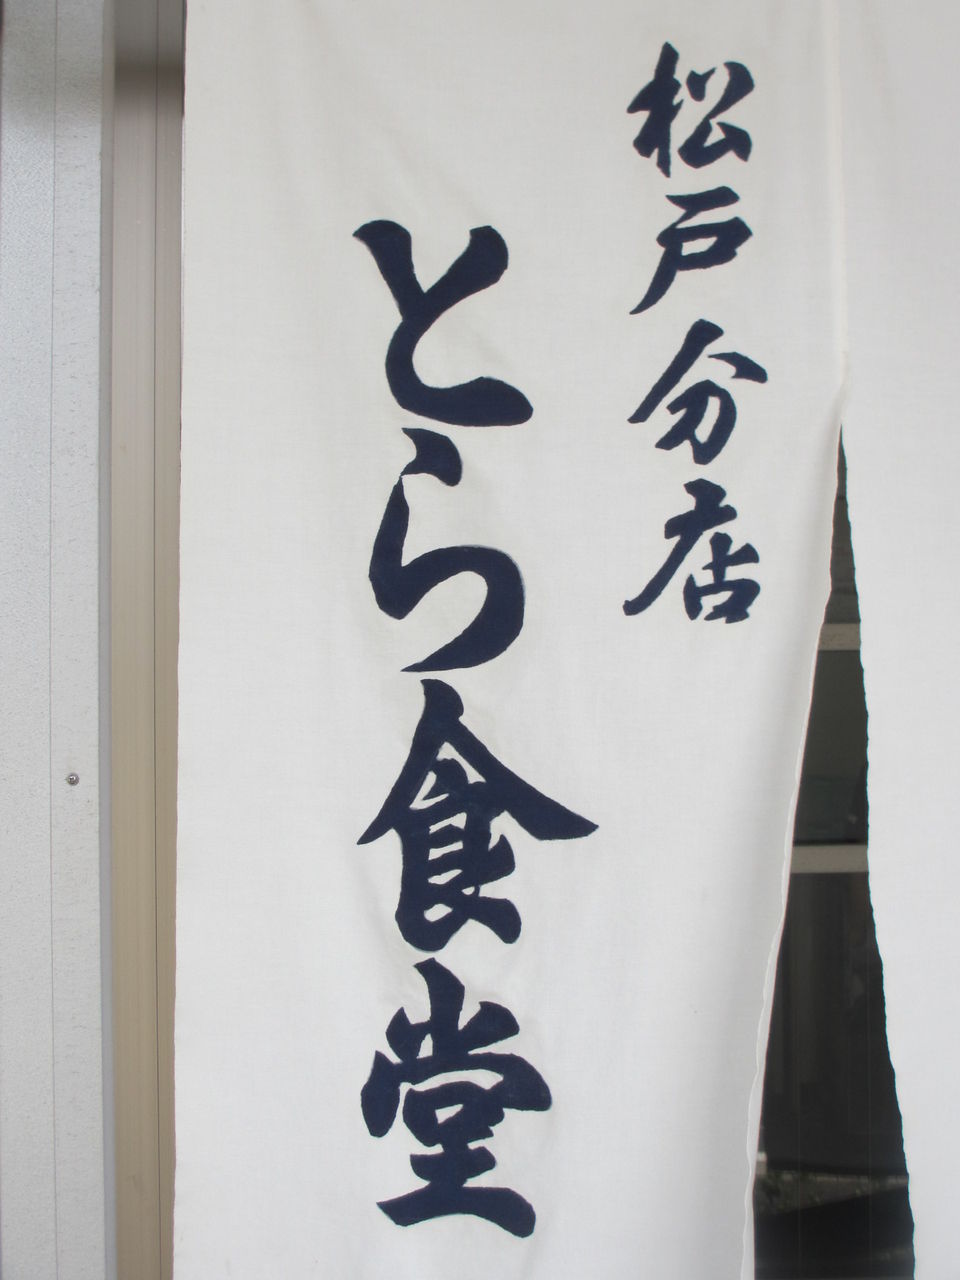 松戸分店
とら食堂